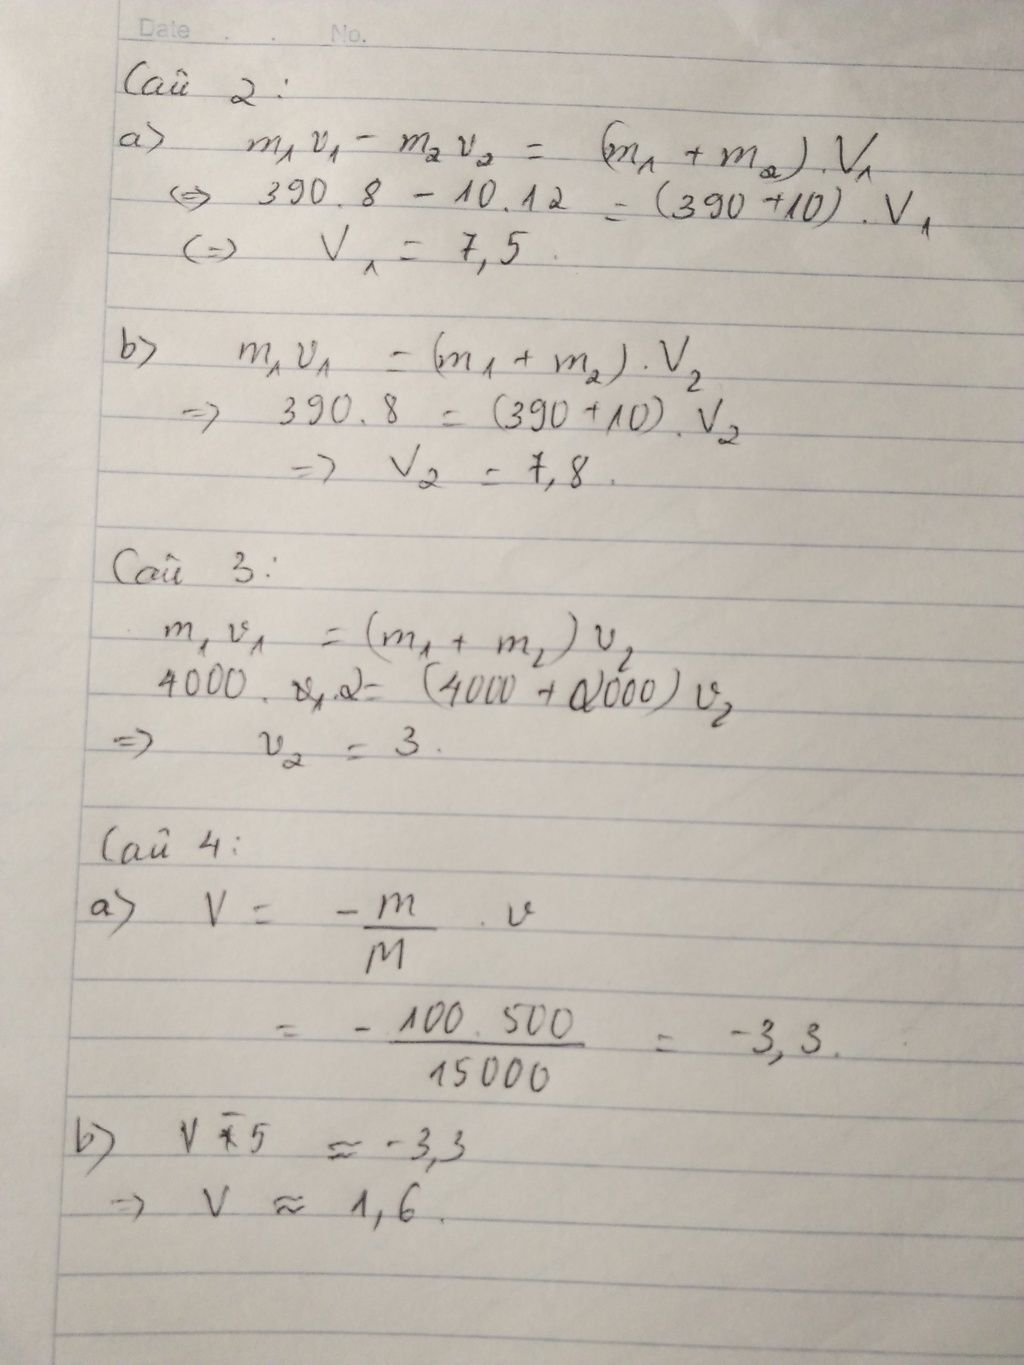 Date . . No.
Câu 2:
a) m₁v₁ - m₂v₂ = (m₁ + m₂).V₁
(=) 390.8 - 10.12 = (390+10).V₁
(=) V₁ = 7,5.
b) m₁v₁ = (m₁ + m₂).V₂
=) 390.8 = (390+10).V₂
=) V₂ = 7,8.
Câu 3:
m₁v₁ = (m₁ + m₂)v₂
4000. .2= (4000 + 2000)v₂
=) v₂ = 3.
Câu 4:
a) V = -m/M . v
= - 100.500/15000 = -3,3.
b) V - 5 ≈ -3,3
=) V ≈ 1,6.